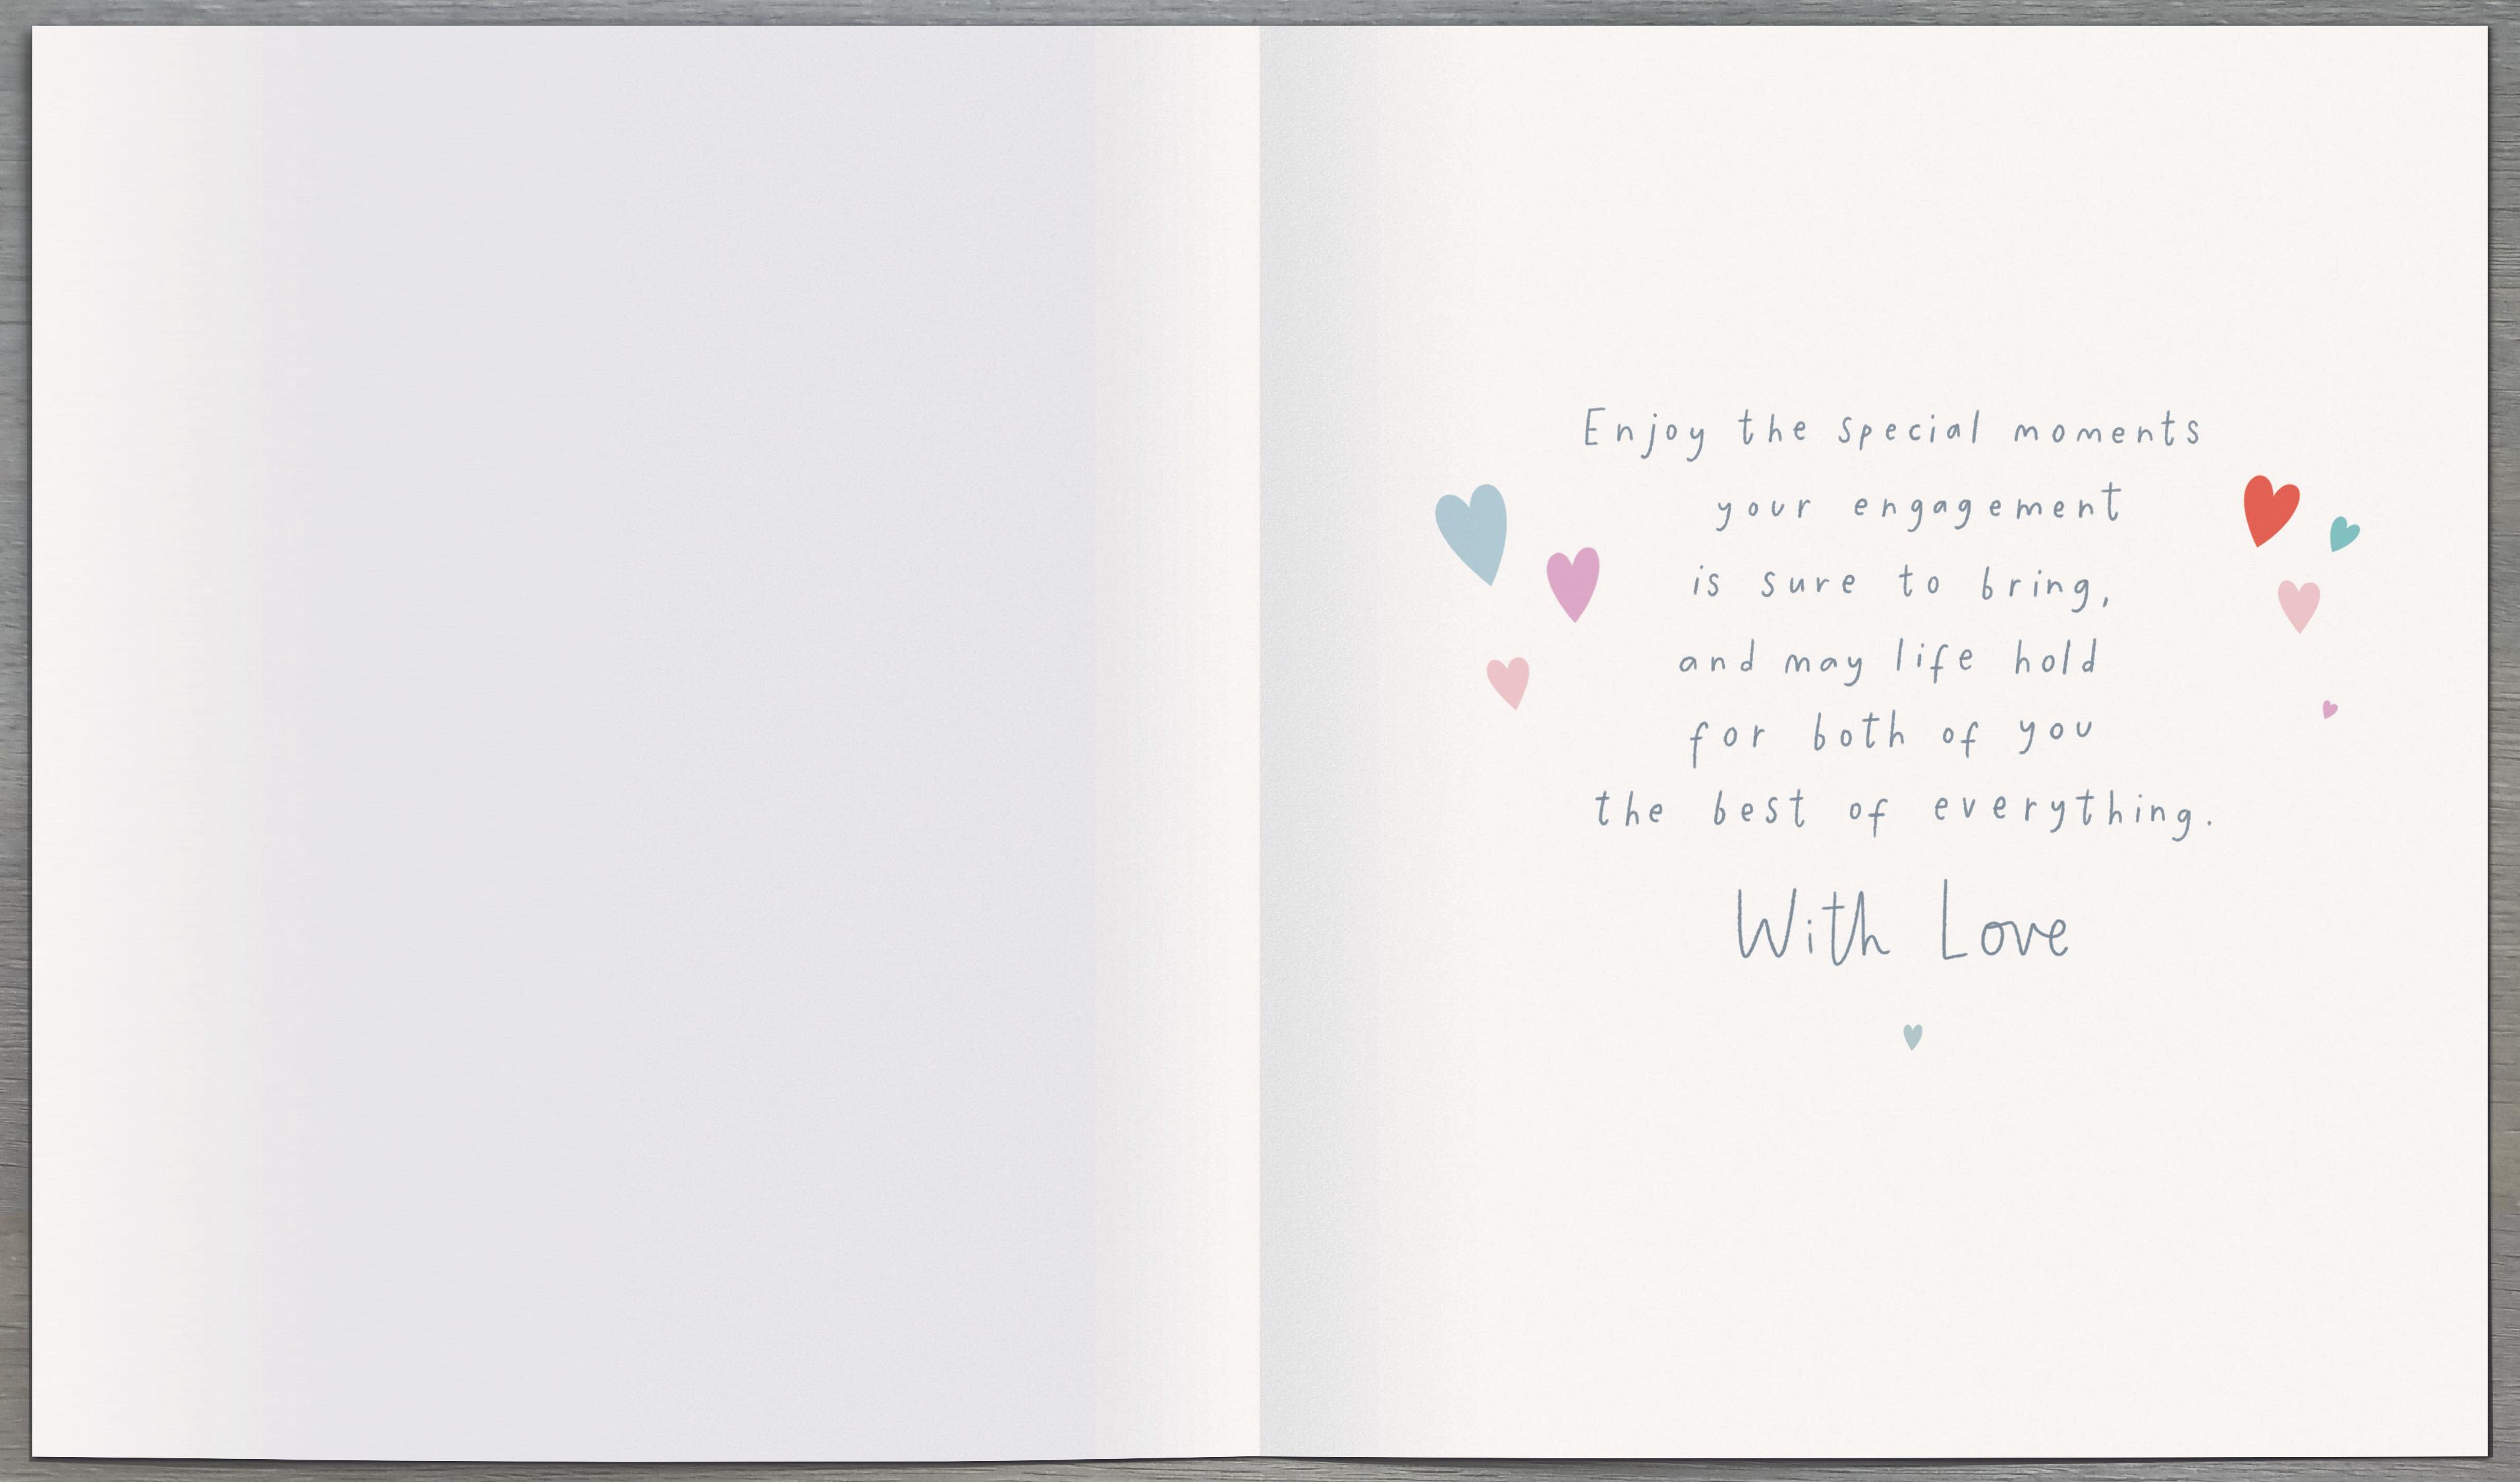 Enjoy the special moments
your engagement
is sure to bring,
and may life hold
for both of you
the best of everything.
With Love